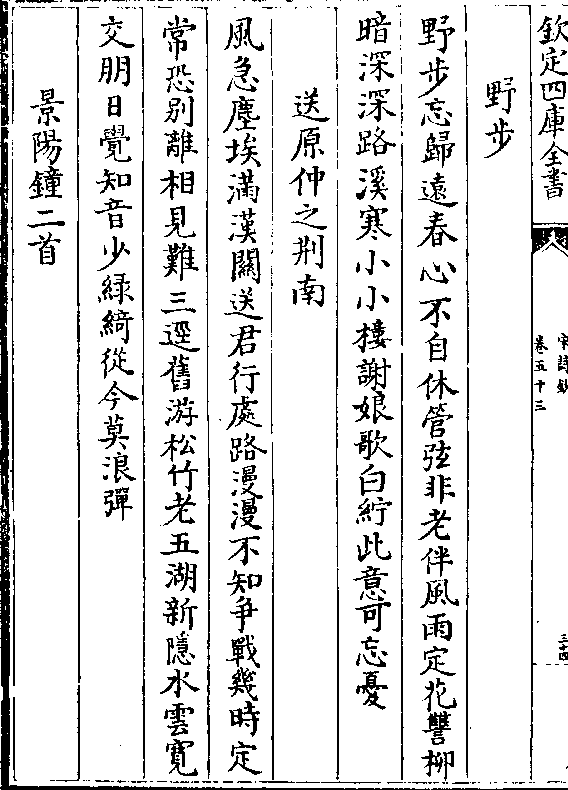 欽定四庫全書
宋詩鈔
卷五十三
三十四
野步
野步忘歸遠春心不自休管弦非老伴風雨定花讐柳
暗深深路溪寒小小樓謝娘歌白紵此意可忘憂
送原仲之荆南
風急塵埃滿漢關送君行處路漫漫不知爭戰幾時定
常恐别離相見難三逕舊游松竹老五湖新隱水雲寛
交朋日覺知音少緑綺從今莫浪彈
景陽鐘二首